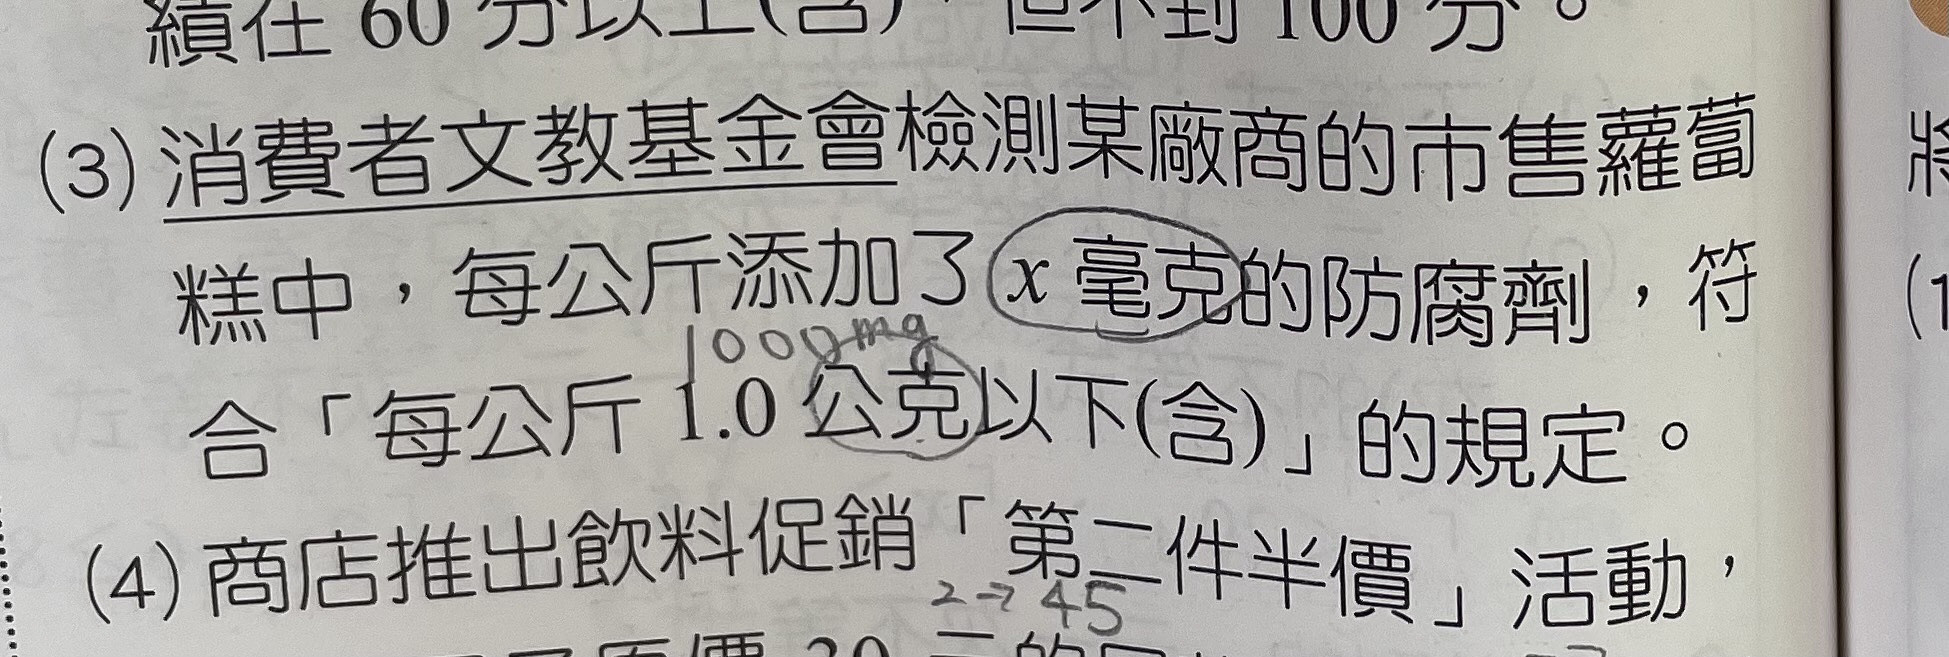 績在 60 分以上(含)，但不到 100 分。
(3) 消費者文教基金會檢測某廠商的市售蘿蔔
糕中，每公斤添加了 x 毫克的防腐劑，符
1000mg
合「每公斤 1.0 公克以下(含)」的規定。
(4) 商店推出飲料促銷「第二件半價」活動，
2→45
原價 30 元的
將
(1